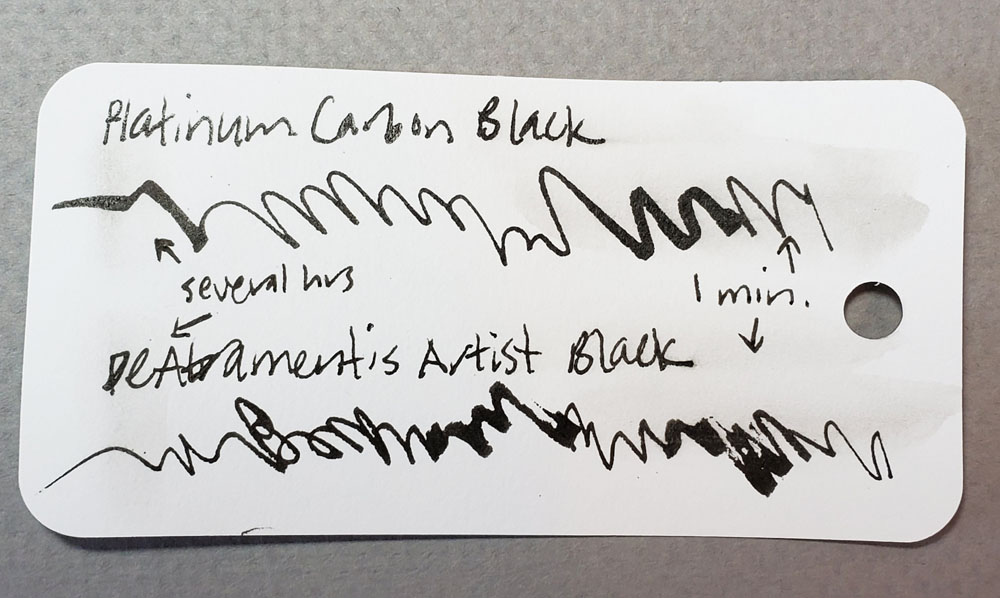 Platinum Carbon Black
several hrs
1 min.
DeAtramentis Artist Black